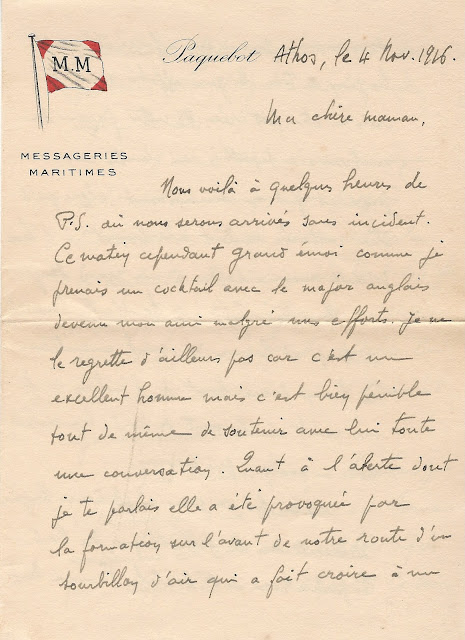 M.M
MESSAGERIES
MARITIMES
Paquebot Athos, le 4 Nov. 1916.
Ma chère maman,
Nous voilà à quelques heures de
P.S. où nous serons arrivés sans incident.
Ce matin cependant grand émoi comme je
prenais un cocktail avec le major anglais
devenu mon ami malgré mes efforts. Je ne
le regrette d'ailleurs pas car c'est un
excellent homme mais c'est bien pénible
tout de même de soutenir avec lui toute
une conversation. Quant à l'alerte dont
je te parlais elle a été provoquée par
la formation sur l'avant de notre route d'un
tourbillon d'air qui a fait croire à un